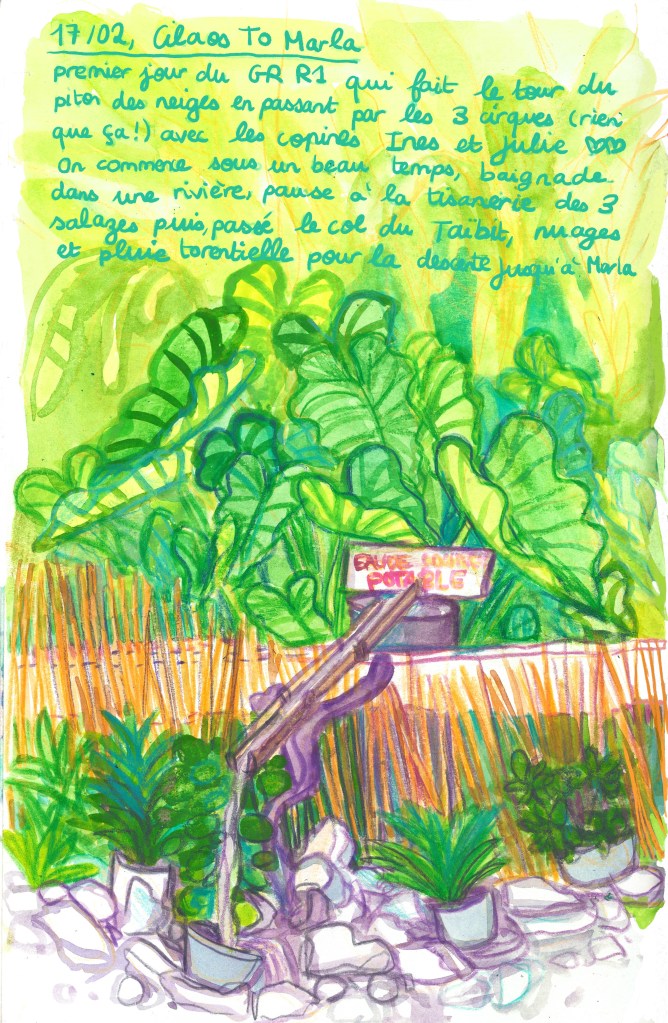 17/02, Cilaos To Marla
premier jour du GR R1 qui fait le tour du
piton des neiges en passant par les 3 cirques (rien
que ça!) avec les copines Ines et Julie ♡♡
On commence sous un beau temps, baignade
dans une rivière, pause à la tisanerie des 3
salazes puis, passé le col du Taïbit, nuages
et pluie torentielle pour la descente jusqu'à Marla
POTABLE